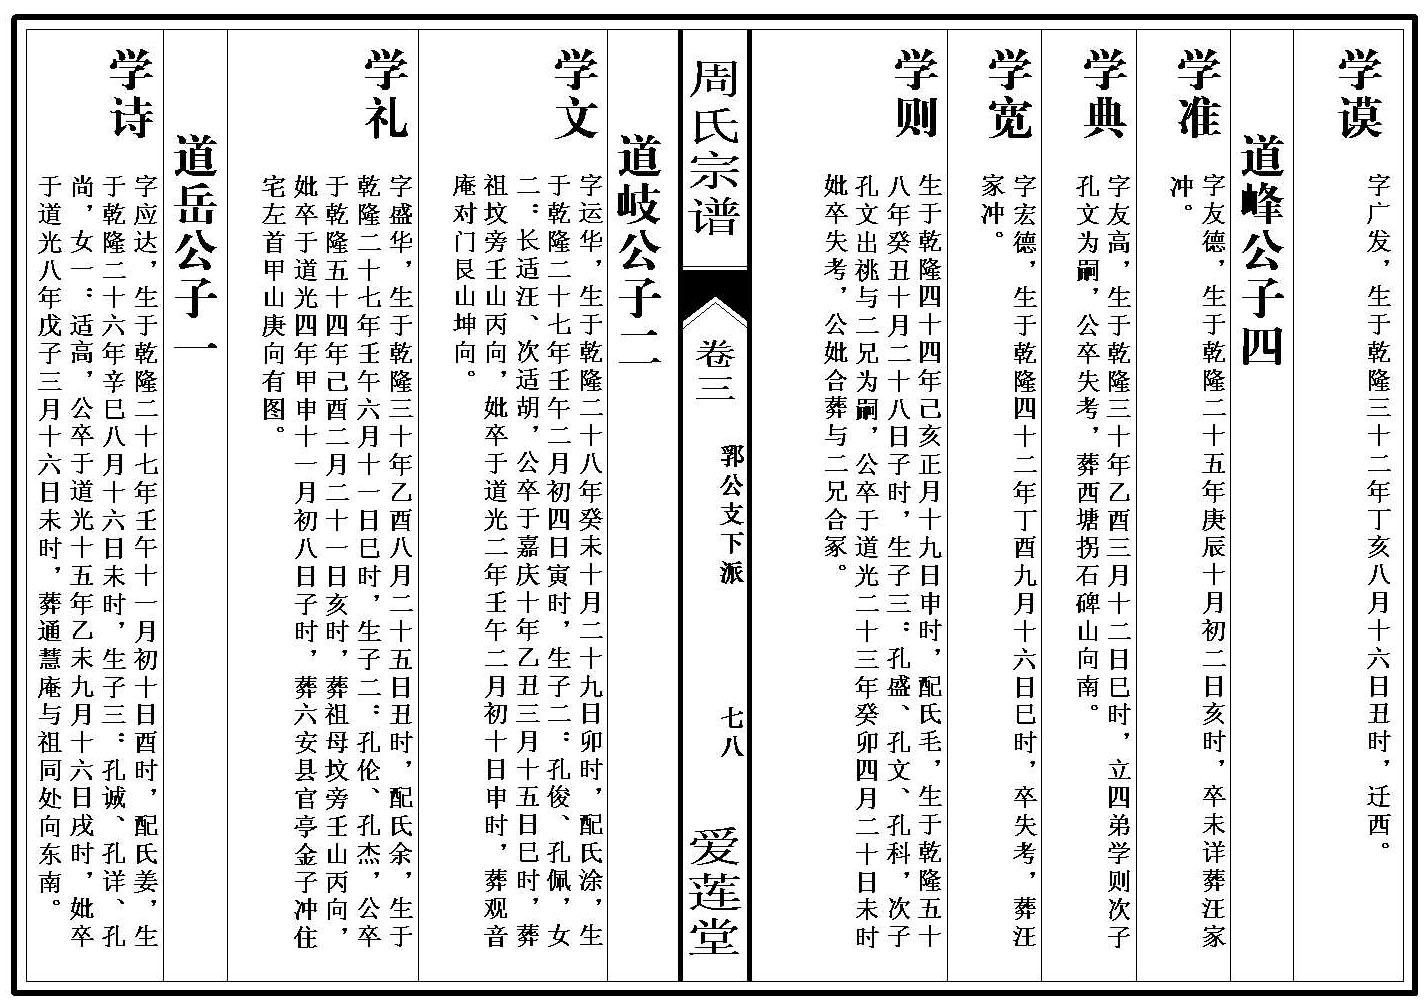 学谟
字广发，生于乾隆三十二年丁亥八月十六日丑时，迁西。
道峰公子四
学准
字友德，生于乾隆二十五年庚辰十月初二日亥时，卒未详葬汪家
冲。
学典
字友高，生于乾隆三十年乙酉三月十二日巳时，立四弟学则次子
孔文为嗣，公卒失考，葬西塘拐石碑山向南。
学宽
字宏德，生于乾隆四十二年丁酉九月十六日巳时，卒失考，葬汪
家冲。
学则
生于乾隆四十四年己亥正月十九日申时，配氏毛，生于乾隆五十
八年癸丑十月二十八日子时，生子三：孔盛、孔文、孔科，次子
孔文出祧与二兄为嗣，公卒于道光二十三年癸卯四月二十日未时
妣卒失考，公妣合葬与二兄合冢。
周氏宗谱
卷三
郭公支下派
七八
爱莲堂
道岐公子二
学文
字运华，生于乾隆二十八年癸未十月二十九日卯时，配氏涂，生
于乾隆二十七年壬午二月初四日寅时，生子二：孔俊、孔佩，女
二：长适汪、次适胡，公卒于嘉庆十年乙丑三月十五日巳时，葬
祖坟旁壬山丙向，妣卒于道光二年壬午二月初十日申时，葬观音
庵对门艮山坤向。
学礼
字盛华，生于乾隆三十年乙酉八月二十五日丑时，配氏余，生于
乾隆二十七年壬午六月十一日巳时，生子二：孔伦、孔杰，公卒
于乾隆五十四年己酉二月二十一日亥时，葬祖母坟旁壬山丙向，
妣卒于道光四年甲申十一月初八日子时，葬六安县官亭金子冲住
宅左首甲山庚向有图。
道岳公子一
学诗
字应达，生于乾隆二十七年壬午十一月初十日酉时，配氏姜，生
于乾隆二十六年辛巳八月十六日未时，生子三：孔诚、孔详、孔
尚，女一：适高，公卒于道光十五年乙未九月十六日戌时，妣卒
于道光八年戊子三月十六日未时，葬通慧庵与祖同处向东南。